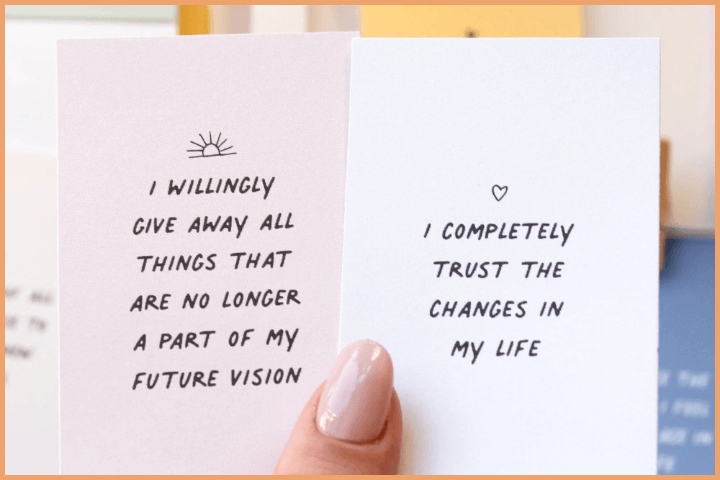 I WILLINGLY
GIVE AWAY ALL
THINGS THAT
ARE NO LONGER
A PART OF MY
FUTURE VISION
I COMPLETELY
TRUST THE
CHANGES IN
MY LIFE